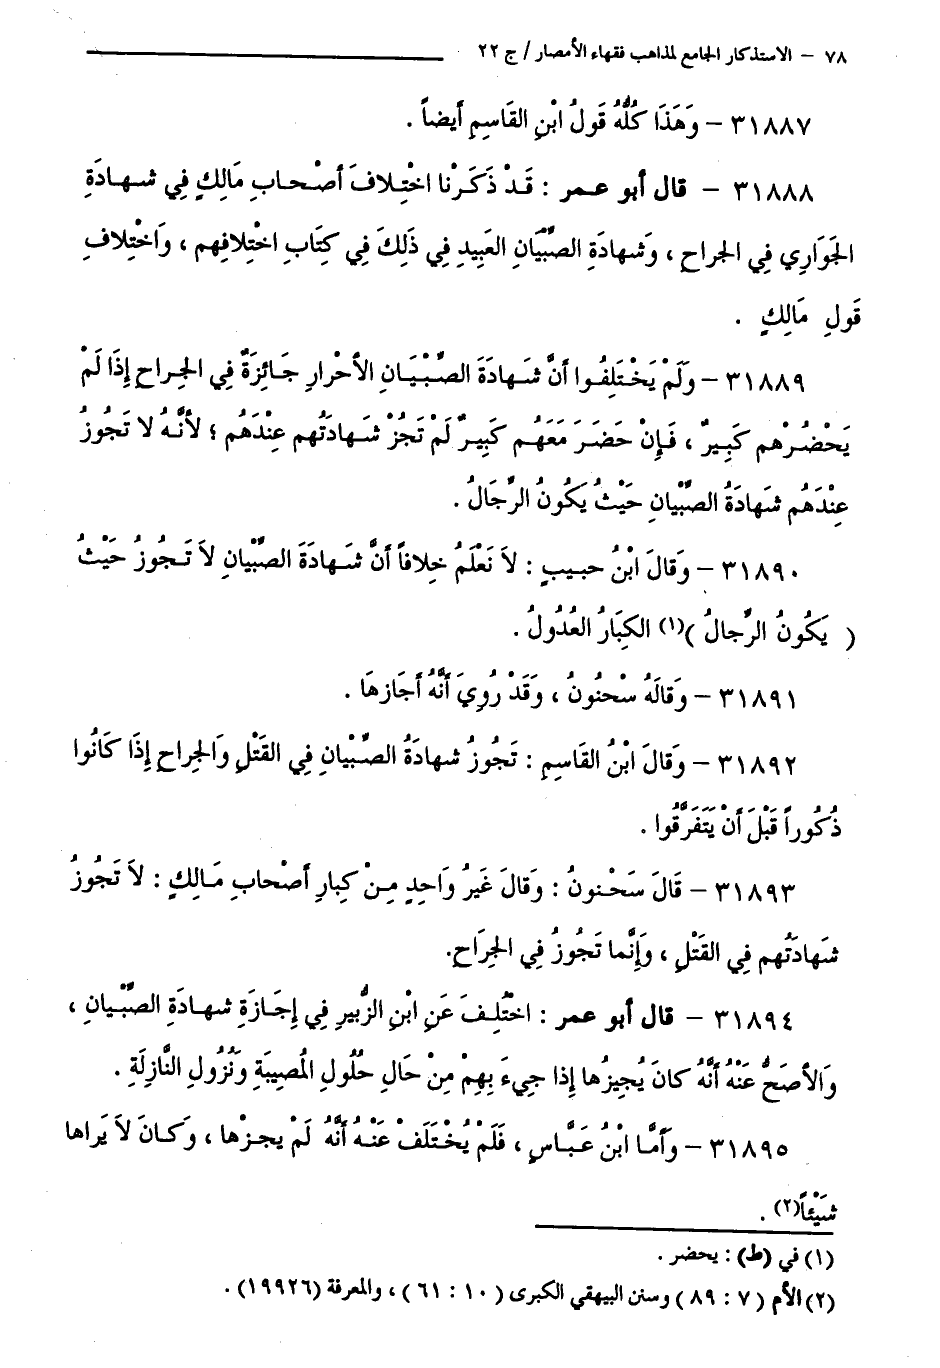 ٧٨ – الاستذكار الجامع لمذاهب فقهاء الأمصار / ج ٢٢
٣١٨٨٧ – وَهَذَا كُلُّهُ قَولُ ابْنِ القَاسِمِ أيضاً .
٣١٨٨٨ – قال أبو عمر : قَدْ ذَكَرْنا اخْتِلافَ أصْحابِ مَالِكٍ فِي شهادَةِ
الجَوَارِي فِي الجراحِ ، وَشهادَةِ الصِّبيَانِ العَبِيدِ فِي ذَلِكَ فِي كِتَابِ اخْتِلافِهم ، وَاخْتِلافِ
قَولِ مَالِكٍ .
٣١٨٨٩ – وَلَمْ يَخْتَلِفُوا أنَّ شَهادَةَ الصِّبْيَانِ الأحْرارِ جَائِزَةٌ فِي الجِراحِ إِذَا لَمْ
يَحْضُرْهم كَبِيرٌ ، فَإِنْ حَضَرَ مَعَهُم كَبِيرٌ لَمْ تَجُزْ شَهادَتُهم عِنْدَهُم ؛ لأنَّهُ لا تَجُوزُ
عِنْدَهُم شَهادَةُ الصِّبْيانِ حَيْثُ يَكُونُ الرِّجَالُ .
٣١٨٩٠ – وَقالَ ابْنُ حبيبٍ : لاَ نَعْلَمُ خِلافاً أنَّ شَهادَةَ الصِّبْيانِ لاَ تَجُوزُ حَيْثُ
( يَكُونُ الرِّجالُ )(١) الكِبَارُ العُدُولُ .
٣١٨٩١ – وَقالَهُ سْحنُونُ ، وَقَدْ رُوِيَ أنَّهُ أجَازهَا .
٣١٨٩٢ – وَقالَ ابْنُ القَاسِمِ : تَجُوزُ شهادَةُ الصِّبْيانِ فِي القَتْلِ وَالجِراحِ إِذَا كَانُوا
ذُكُوراً قَبْلَ أنْ يَتَفَرَّقُوا .
٣١٨٩٣ – قَالَ سَحْنونُ : وَقالَ غَيرُ وَاحِدٍ مِنْ كِبارِ أصْحابِ مَالِكٍ : لاَ تَجُوزُ
شَهادَتُهم فِي القَتْلِ ، وَإِنَّما تَجُوزُ فِي الجِرَاحِ.
٣١٨٩٤ – قال أبو عمر : اخْتُلِفَ عَنِ ابْنِ الزُّبيرِ فِي إِجَازَةِ شهادَةِ الصِّبْيانِ ،
وَالأصَحُّ عَنْهُ أنَّهُ كانَ يُجِيزُها إذا جِيءَ بِهِمْ مِنْ حَالِ حُلُولِ المُصِيبَةِ وَنُزُولِ النَّازِلَةِ .
٣١٨٩٥ – وَأمَّا ابْنُ عَبَّاسٍ ، فَلَمْ يُخْتَلَفْ عَنْهُ أنَّهُ لَمْ يجزْها ، وَكَانَ لاَ يَراها
شَيْئاً(٢) .
(١) في (ط) : يحضر .
(٢) الأم ( ٧ : ٨٩ ) وسنن البيهقي الكبرى ( ١٠ : ٦١ ) ، والمعرفة (١٩٩٢٦) .